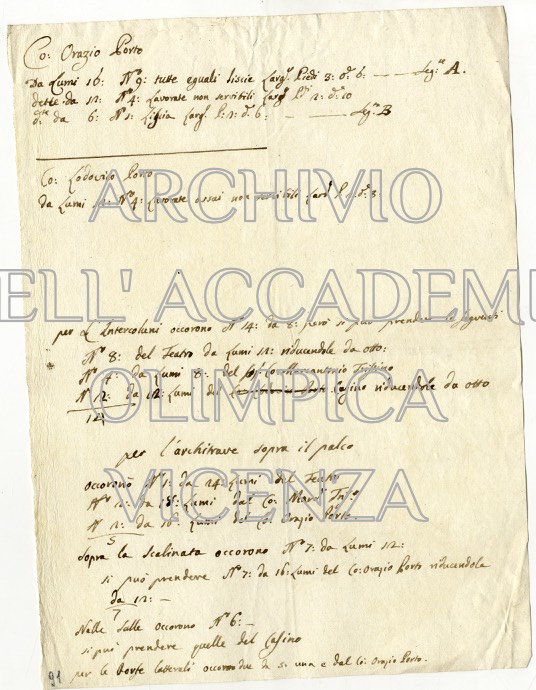 Co: Orazio Porto
Da Lumi 16: N.o 9: tutte eguali liscie Largh. Piedi 3: d.e 6: — Seg.te A.
dette da 12: N.o 4: Lavorate non servibili Largh. P.di 2: d.e 10
d.te da 6: N.o 1: Liscia Largh. P: 2: d.e 6: — Seg.te B
Co: Lodovico Porto
da Lumi 12: N.o 4: Lavorate assai non servibili Largh. P.
ARCHIVIO
DELL' ACCADEMI
OLIMPICA
VICENZA
per L Intercoluni occorono N.o 14: da 8: però si può prendere le seguenti
N.o 8: del Teatro da Lumi 12: riducendole da otto:
N.o 4: da Lumi 8: del Co: Marcantonio Trissino
N. 2: da 12: Lumi del Casino riducendole da otto
14
per l'architrave sopra il palco
occorono N.o 1: da 24 Lumi del Teatro
N.o 2: da Lumi dal Co:
N. 2: da 16: Lumi del Co: Orazio Porto.
5
Sopra la Scalinata occorono N.o 7: da Lumi 12:
si può prendere N.o 7: da 16: Lumi del Co: Orazio Porto riducendole
da 12: —
7
Nelle Salle occorono N.o 6: —
si può prendere quelle del Casino
per le Porte laterali occorrono due da 5: una e dal Co: Orazio Porto.
91